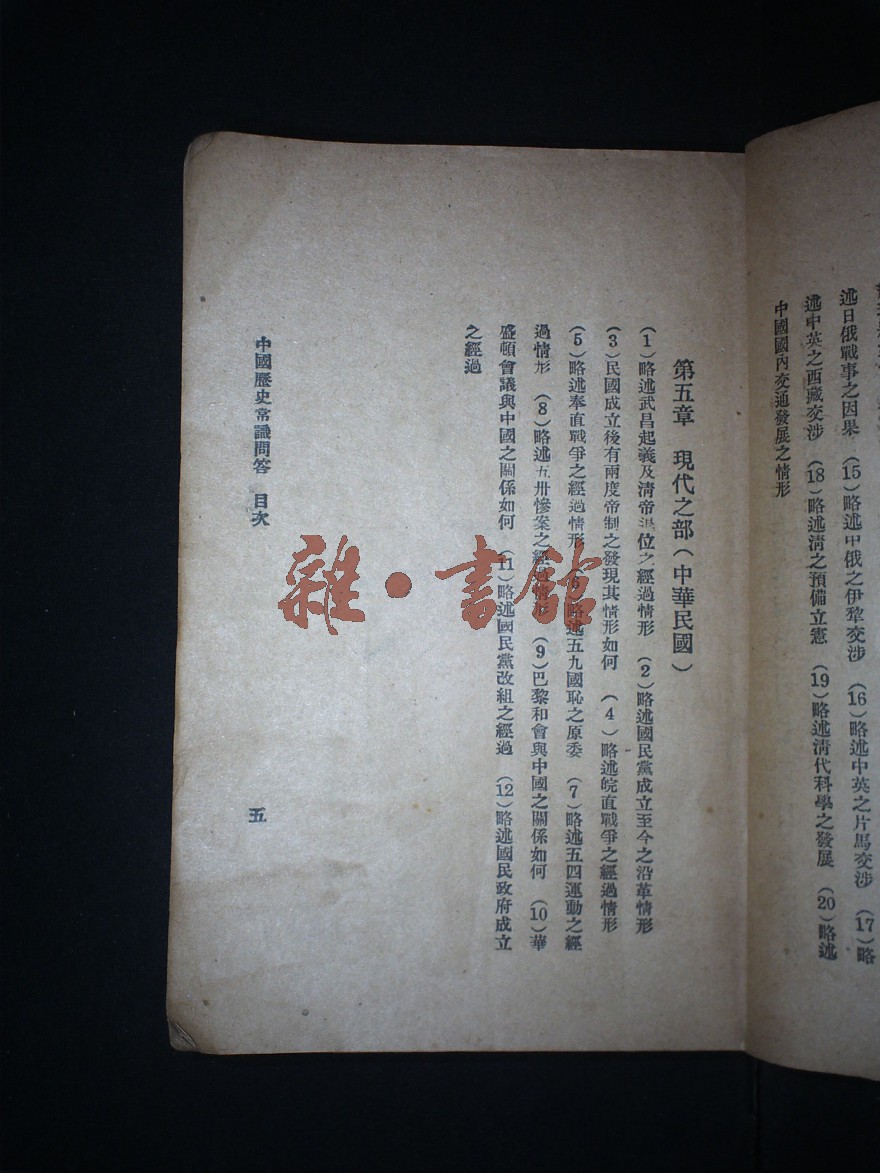 述日俄戰事之因果 (15)略述中俄之伊犂交涉 (16)略述中英之片馬交涉 (17)略
述中英之西藏交涉 (18)略述淸之預備立憲 (19)略述淸代科學之發展 (20)略述
中國國內交通發展之情形
第五章 現代之部(中華民國)
(1)略述武昌起義及淸帝退位之經過情形 (2)略述國民黨成立至今之沿革情形
(3)民國成立後有兩度帝制之發現其情形如何 (4)略述皖直戰爭之經過情形
(5)略述奉直戰爭之經過情形 (6)略述五九國恥之原委 (7)略述五四運動之經
過情形 (8)略述五卅慘案之經過情形 (9)巴黎和會與中國之關係如何 (10)華
盛頓會議與中國之關係如何 (11)略述國民黨改組之經過 (12)略述國民政府成立
之經過
中國歷史常識問答 目次
五
雜·書館